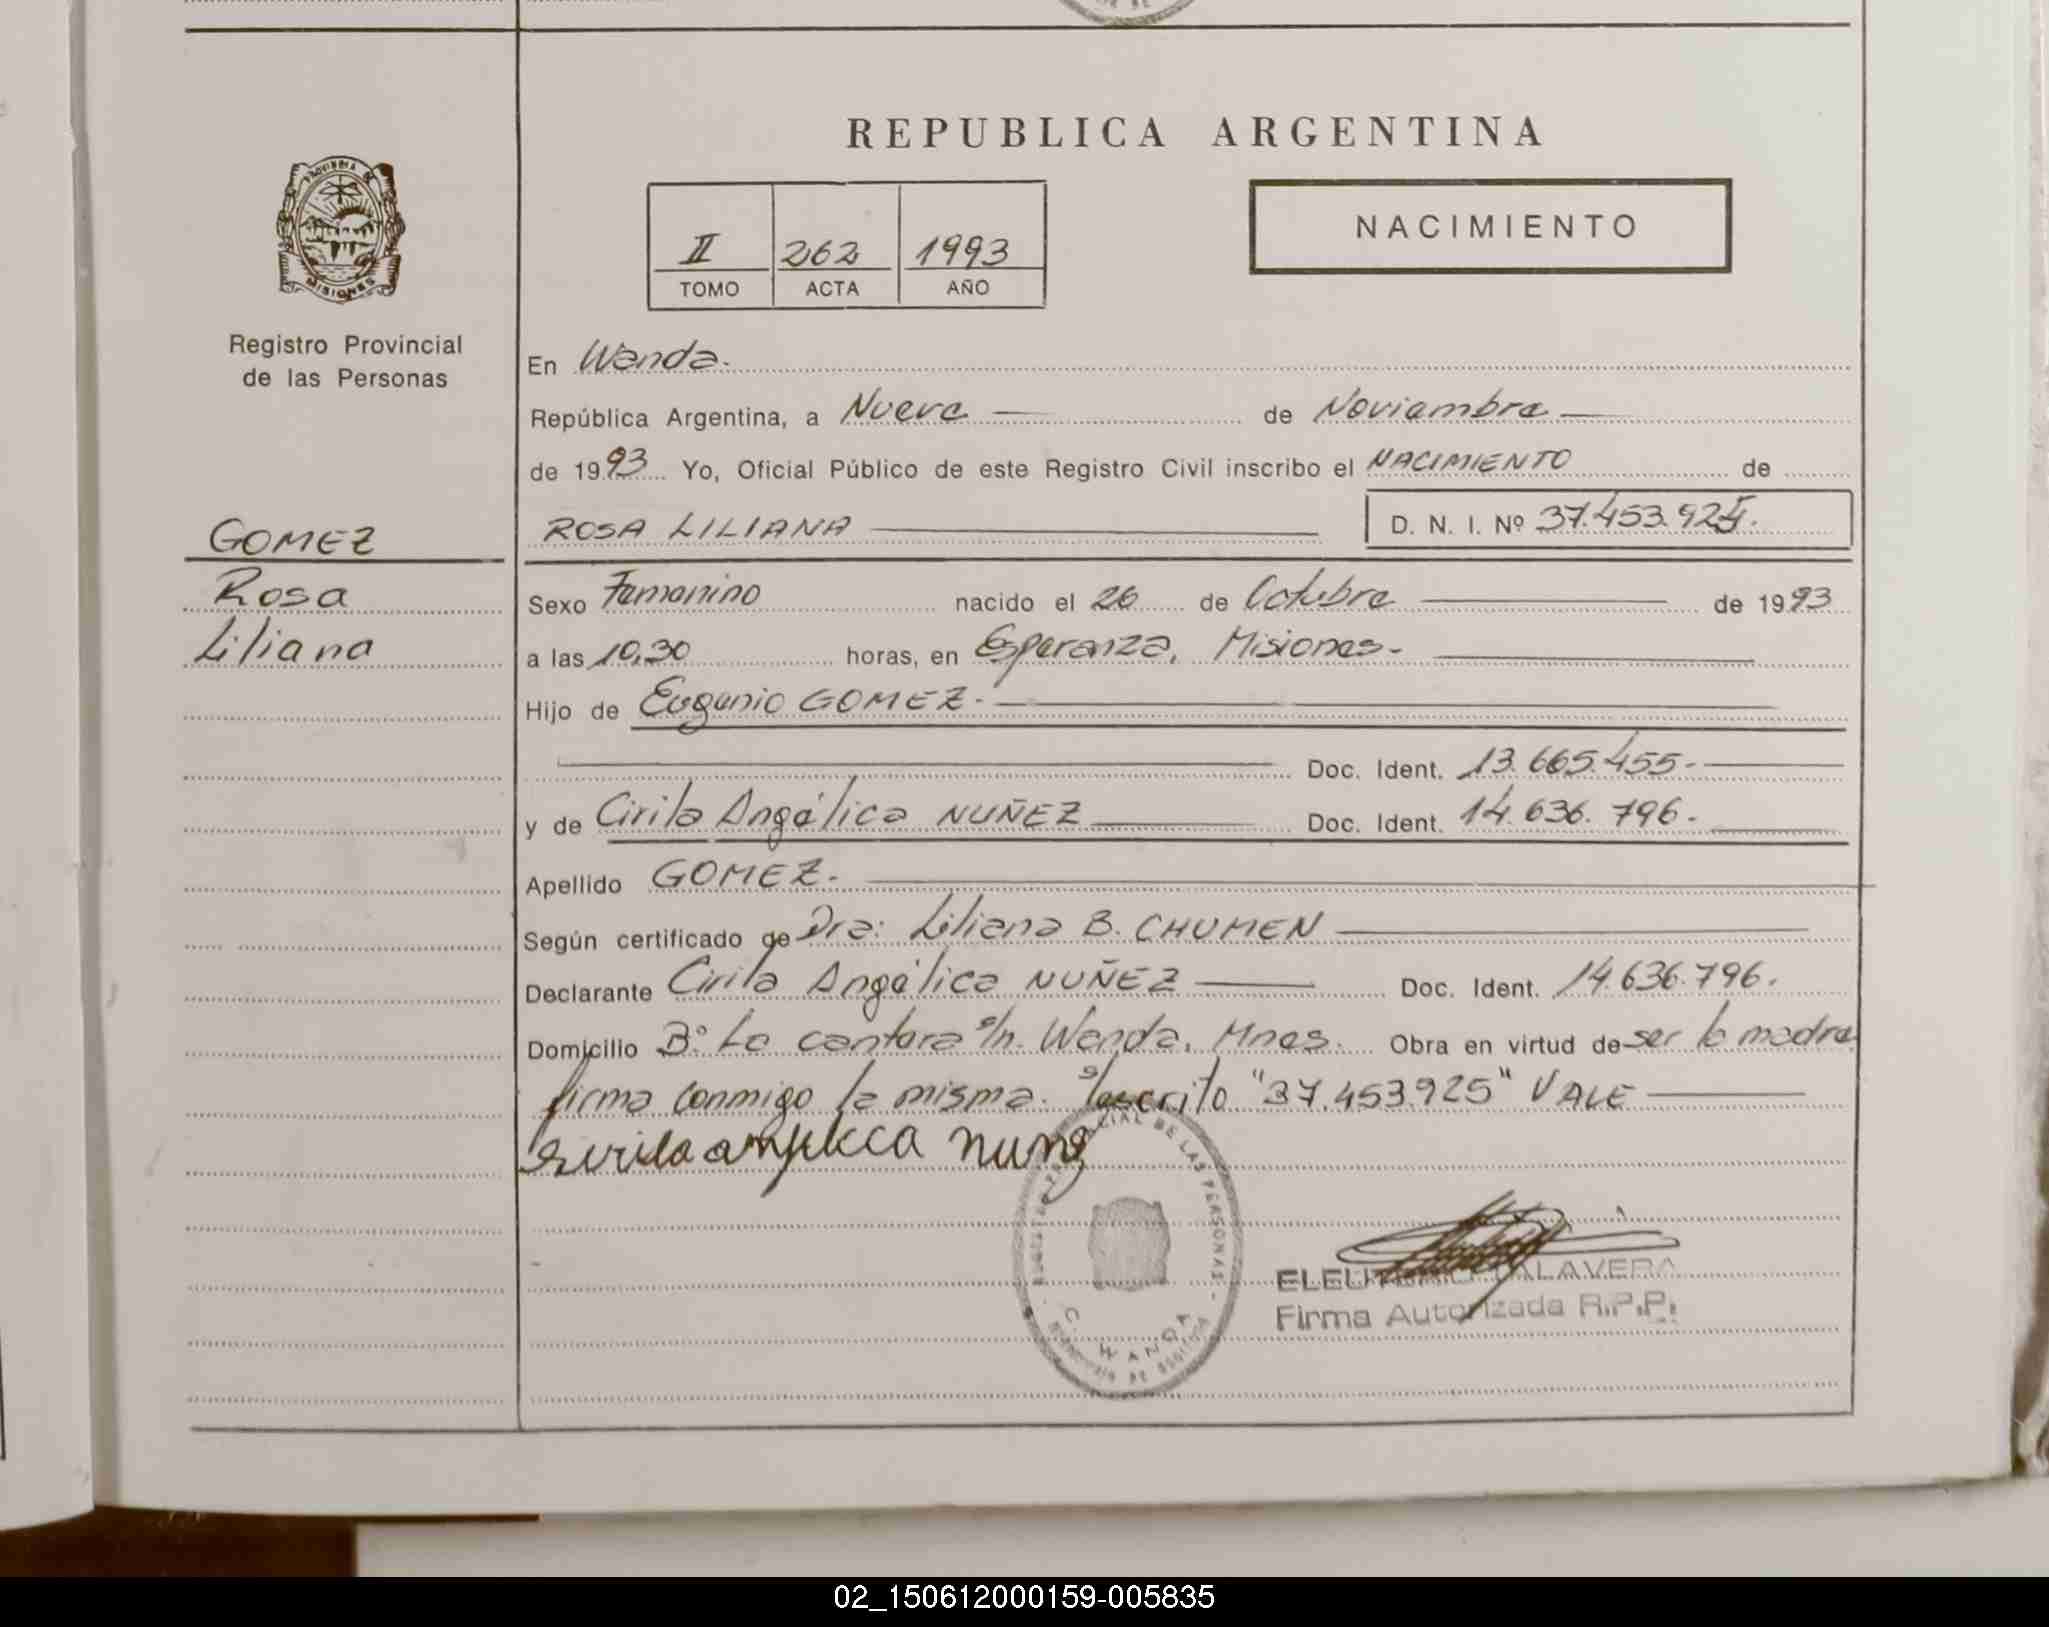 REPUBLICA ARGENTINA
PROVINCIA DE
MISIONES
II 262 1993
TOMO ACTA AÑO
NACIMIENTO
Registro Provincial
de las Personas
En Wanda.
República Argentina, a Nueve de Noviembre
de 1993 Yo, Oficial Público de este Registro Civil inscribo el NACIMIENTO de
GOMEZ
ROSA LILIANA D. N. I. Nº 37.453.925.
Rosa
Sexo Femenino nacido el 26 de Octubre de 1993
Liliana
a las 10,30 horas, en Esperanza, Misiones.-
Hijo de Eugenio GOMEZ.-
Doc. Ident. 13.665.455.-
y de Cirila Angélica NUÑEZ Doc. Ident. 14.636.796.-
Apellido GOMEZ.-
Según certificado de Dra: Liliana B. CHUMEN
Declarante Cirila Angélica NUÑEZ Doc. Ident. 14.636.796.
Domicilio Bº La cantera s/n. Wanda, Mnes. Obra en virtud de ser la madre
firma conmigo la misma. "37.453.925" VALE
DE LAS PERSONAS
C. WANDA
ELEUTERIO TALAVERA
Firma Autorizada R.P.P.
02_150612000159-005835